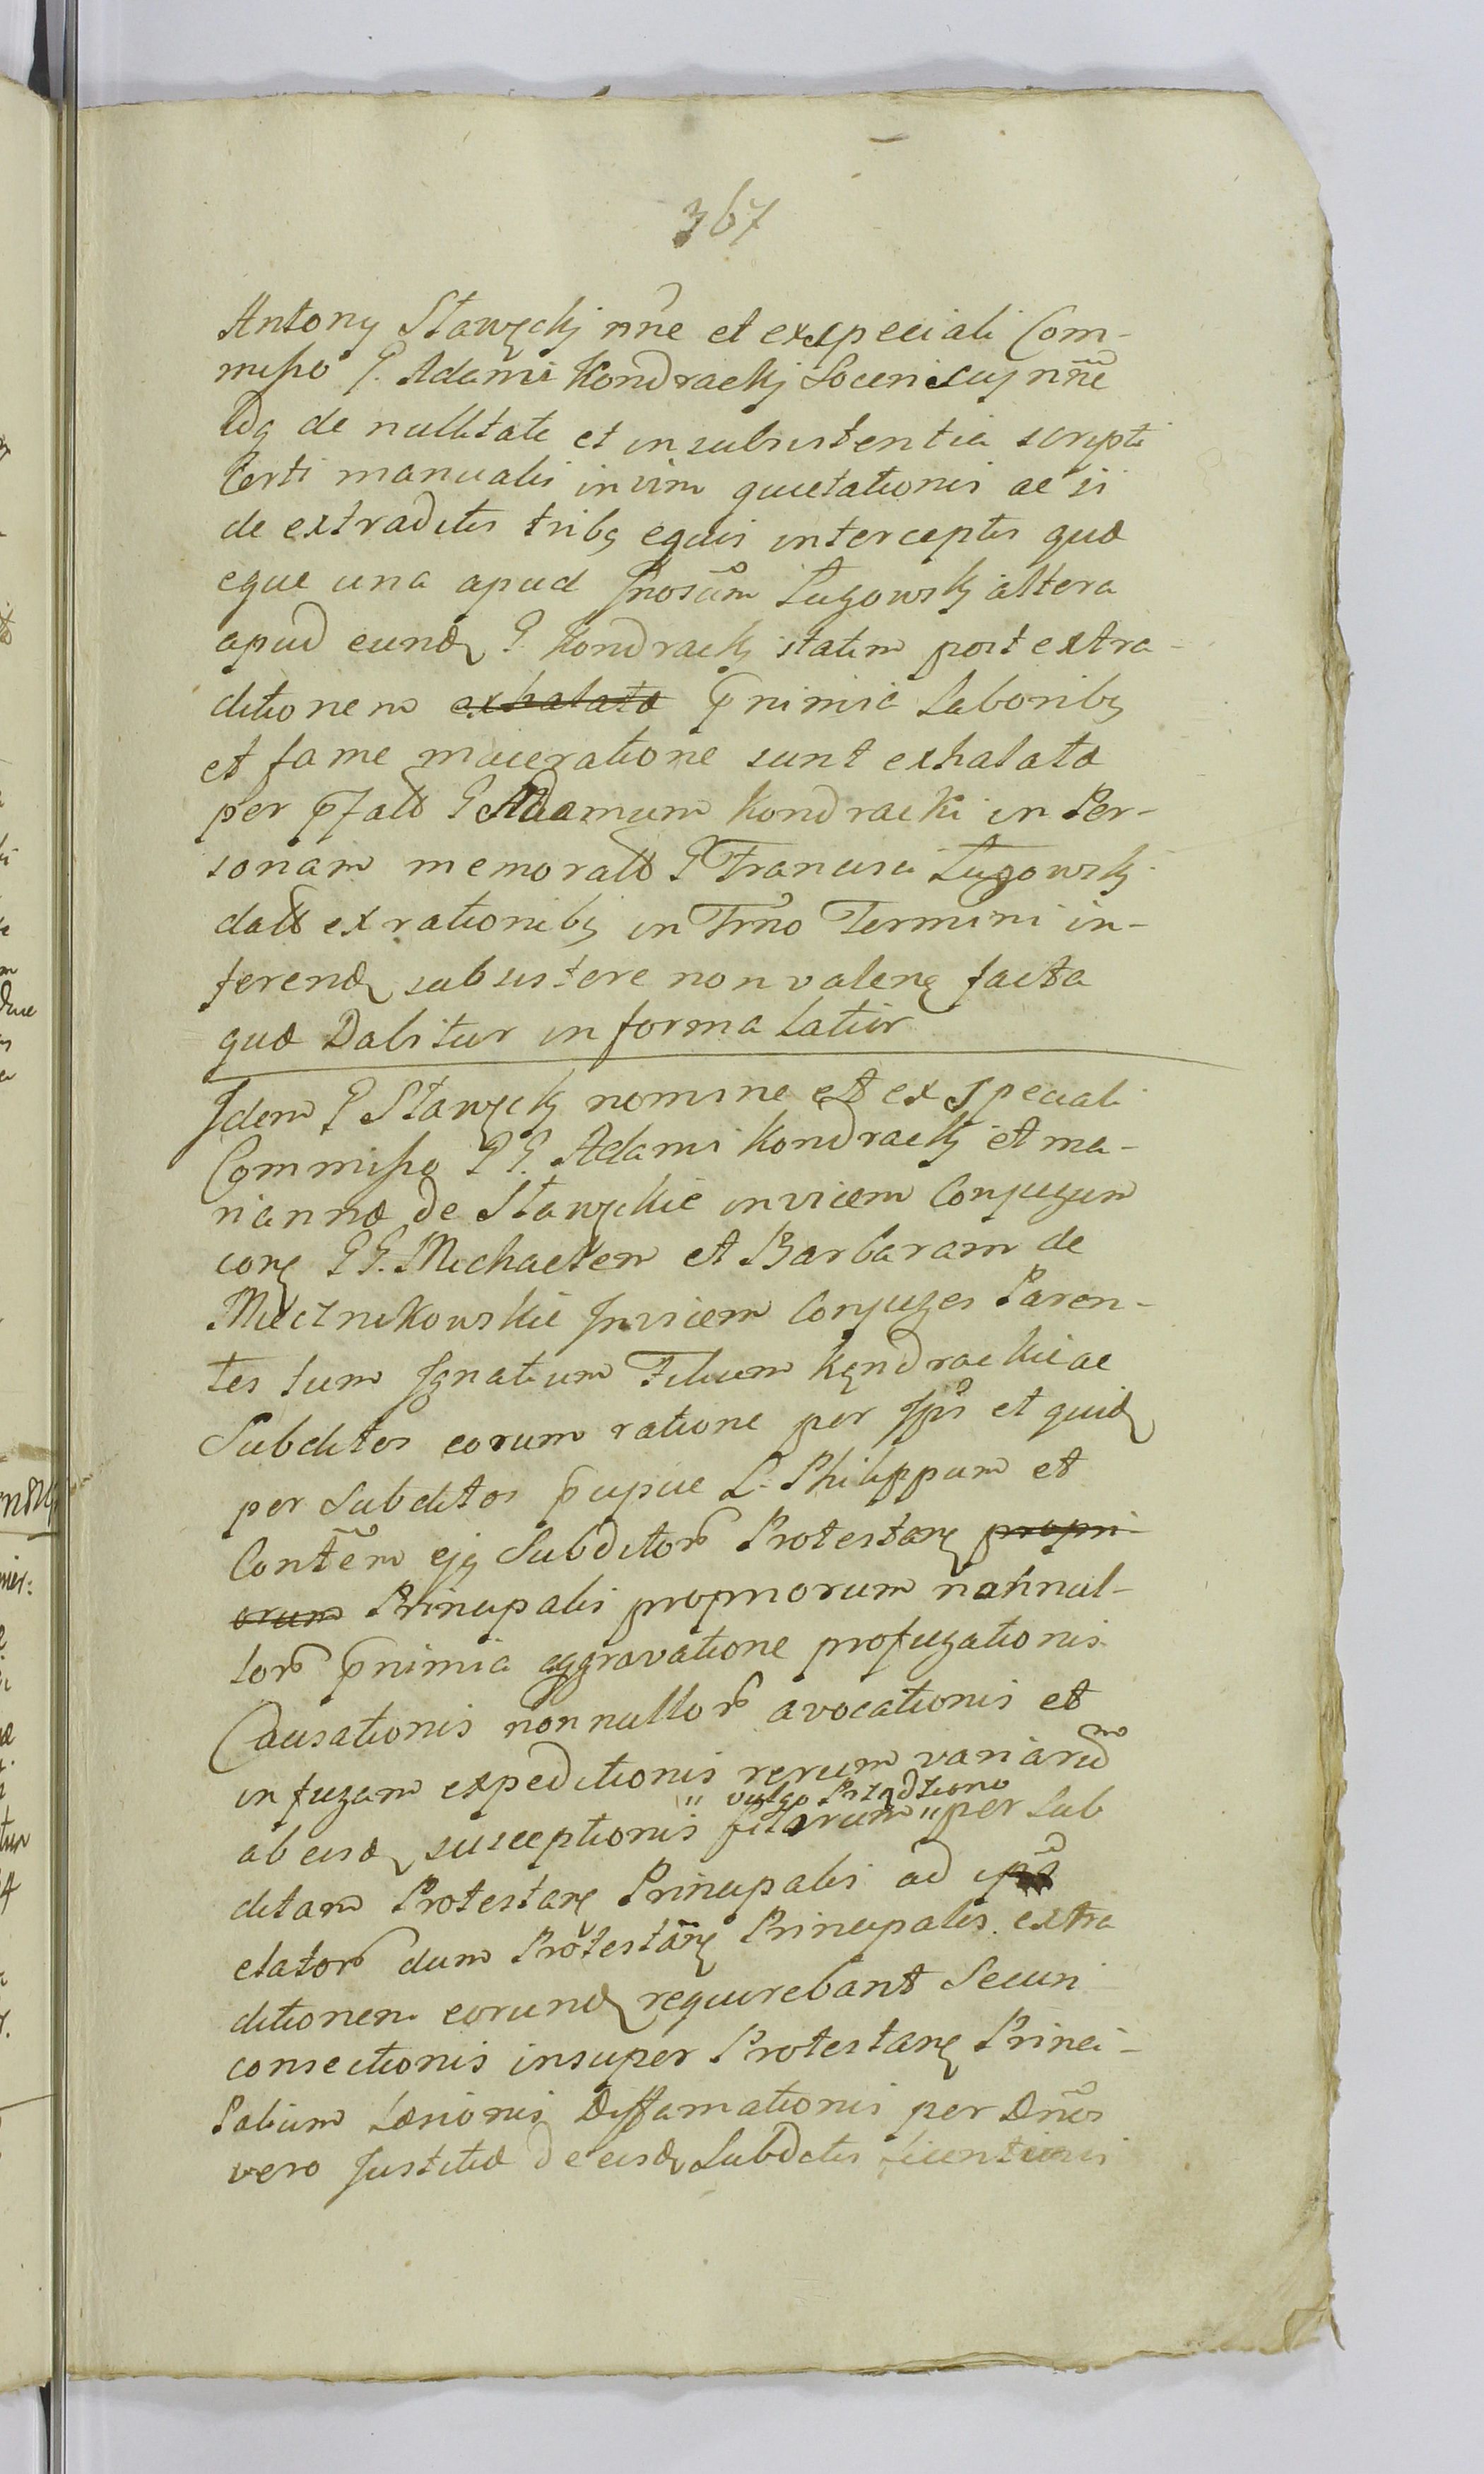 367
Antony Stawęckj nñe et ex speciali Com-
misso G. Adami Kondrackj Socerisuj nñe
idq de nullitate et insubsistentia scripti
Certi manualis in vim quietationis ac si
de extraditis tribq equis interceptis quæ
eque una apud Gnosum Ługowskj altera
apud eundē G. Kondrackj statim post extra-
ditionem exhalatæ p̄ nimia Laboribq
et fame maceratione sunt exhalatæ
per p̄fatū G Adamum Kondracki in Per-
sonam memoratū G Francisci Ługowskj
datū ex rationibq in Trño Termini in-
ferendē subsistere non valenę facta
quæ Dabitur in forma Latiūr
Idem G Stawęckj nomine et ex speciali
Commisso GG. Adami Kondrackj et Ma-
riannæ de Stawęckie invicem Conjugum
corę GG. Michaelem et Barbaram de
Miecznikowskie Invicem Conjuges Paren-
tes tum Ignatium Filium Kędrackie ac
Subditos eorum ratione per Ipōs et quidē
per Subditos p̄cipue L. Philippum et
Contēm ejq Subditorō Protestarę propri-
orum Principalis propriorum nonnul-
lorō p̄ nimia aggravatione profugationis
Causationis nonnullorō avocationis et
in fugam expeditionis rerum variarum
ab eisdē susceptionis filorum " per Sub
" vulgo Przędziono
ditam Protestarę Principalis ad
elatorō dum Protestãrę Principales extra
ditionem eorundē requirebant Securi
consectionis insuper Protestarę Princi-
palium Læsionis Diffamationis per Dños
vero Justitiæ de eisdē Subditis